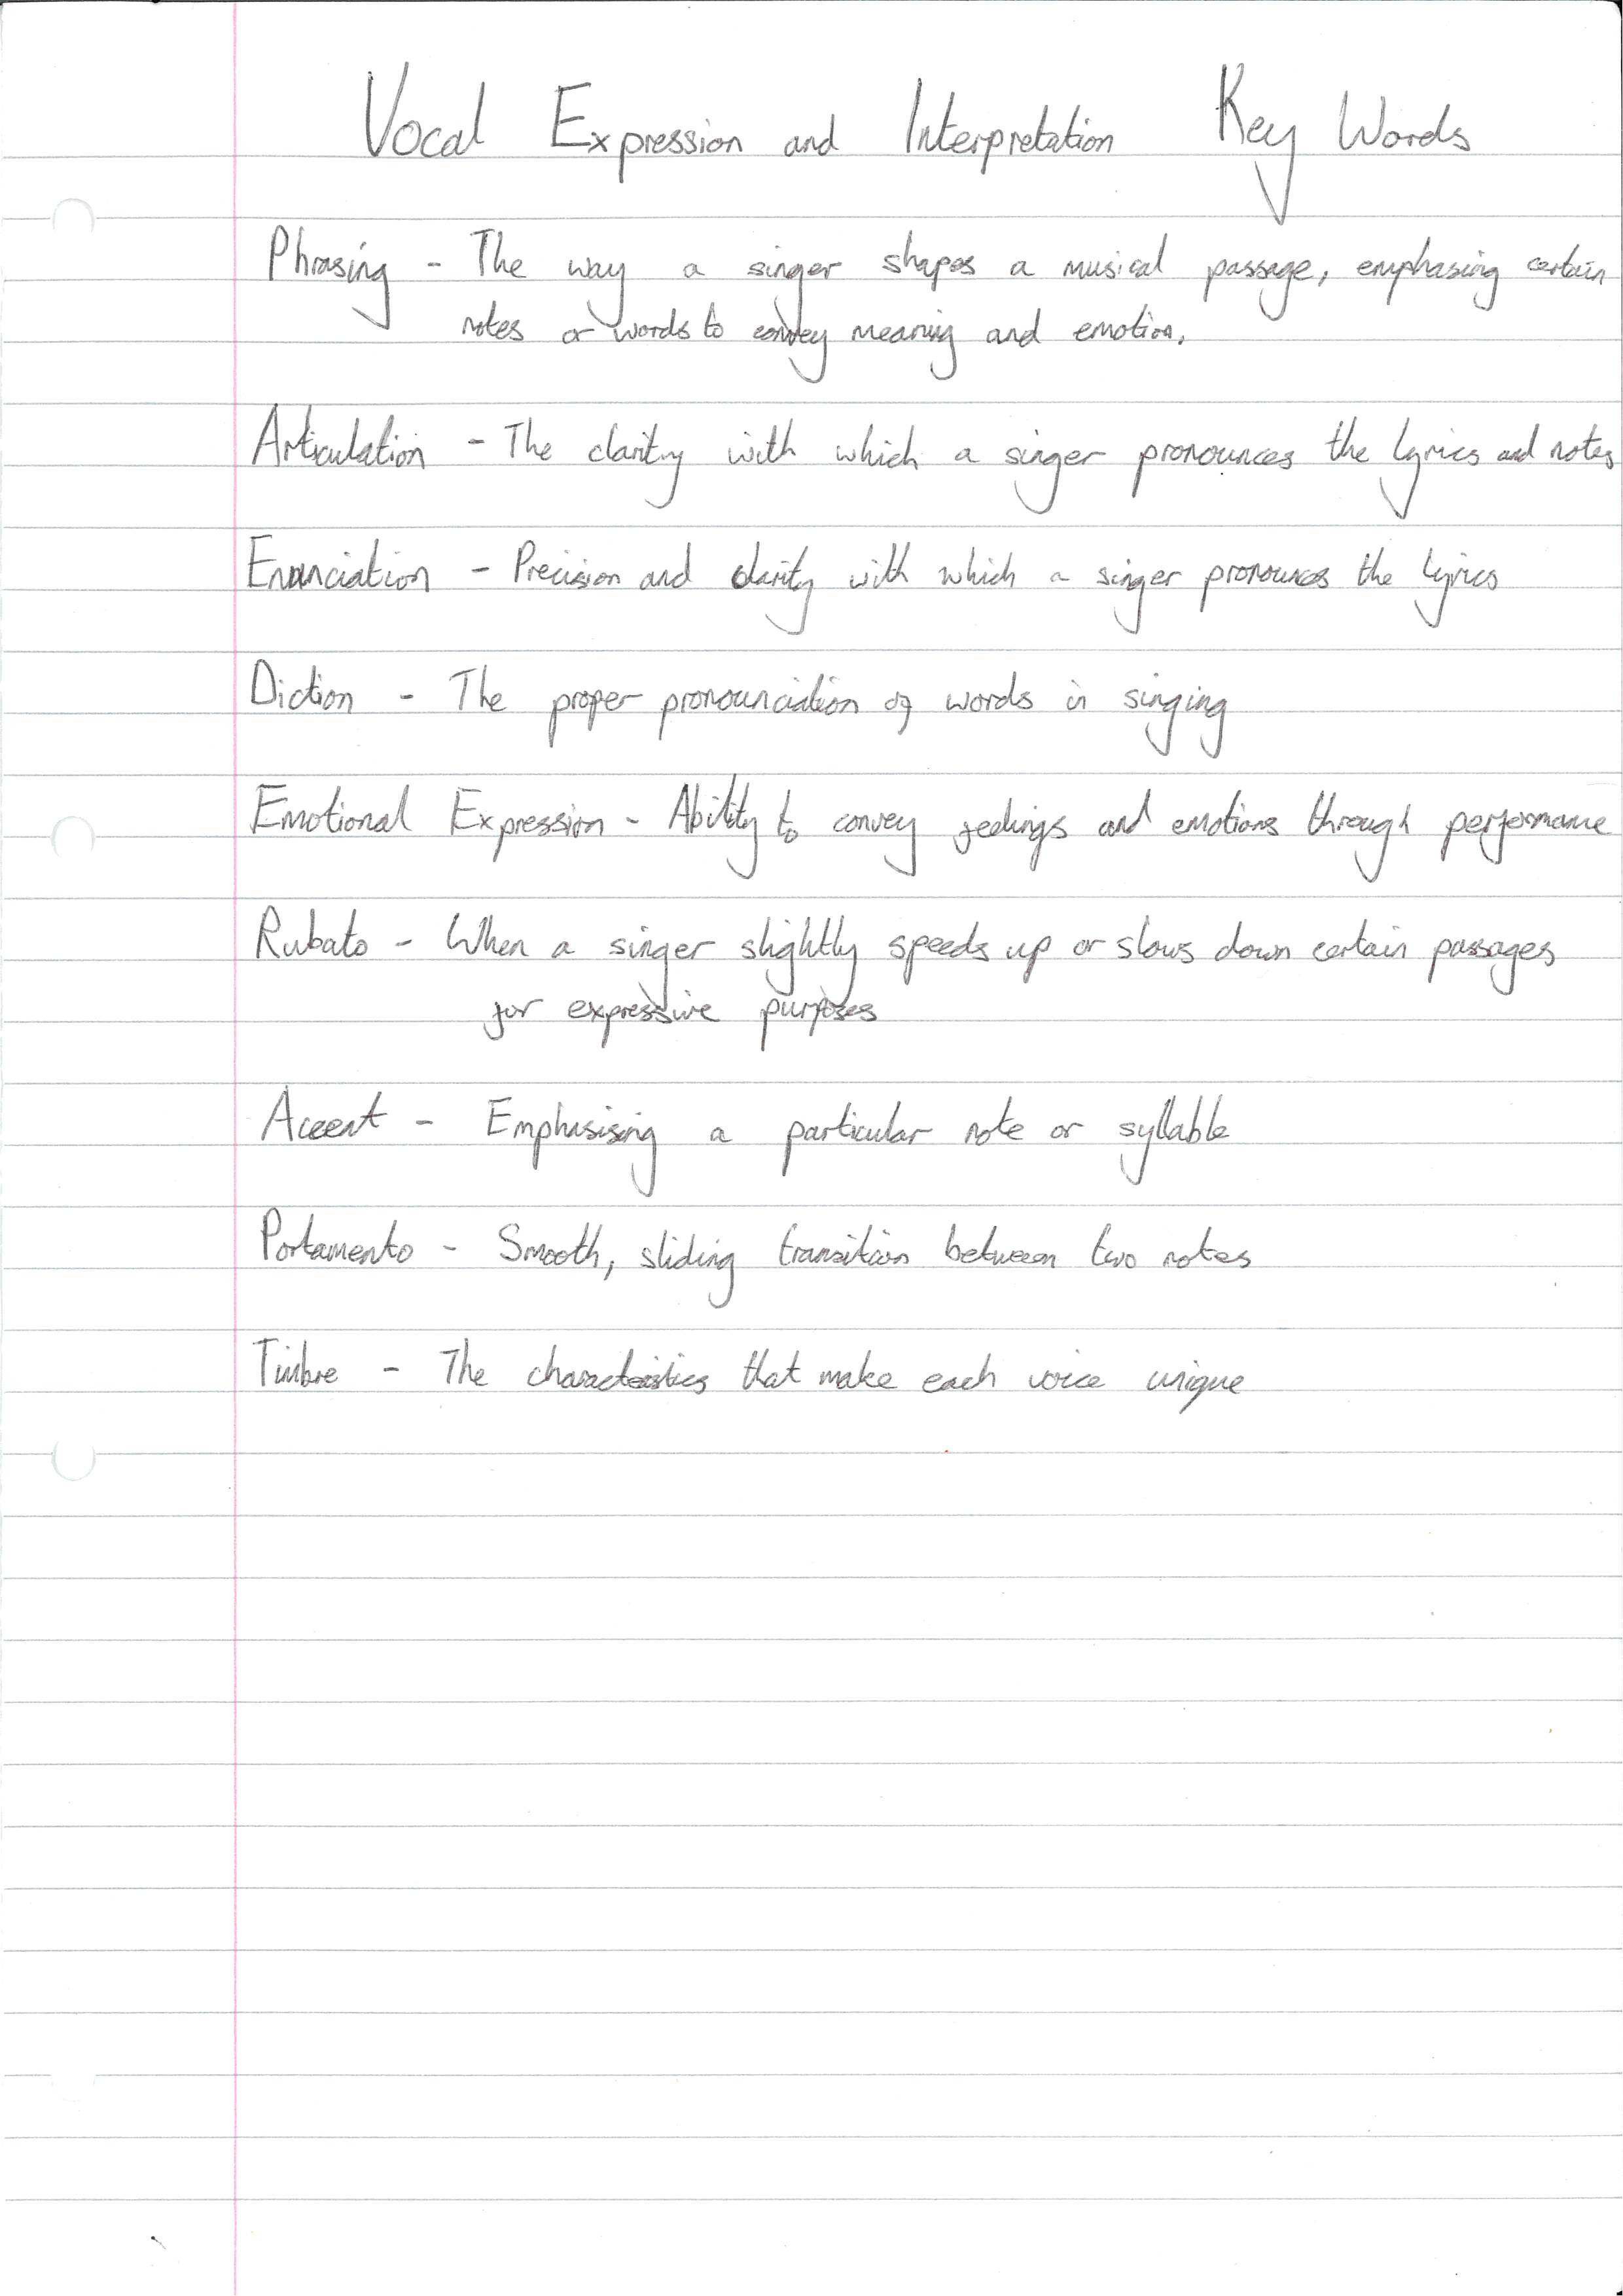 Vocal Expression and Interpretation Key Words
Phrasing - The way a singer shapes a musical passage, emphasing certain
notes or words to convey meaning and emotion.
Articulation - The clarity with which a singer pronounces the lyrics and notes
Enunciation - Precision and clarity with which a singer pronounces the lyrics
Diction - The proper pronounciation of words in singing
Emotional Expression - Ability to convey feelings and emotions through performance
Rubato - When a singer slightly speeds up or slows down certain passages
for expressive purposes
Accent - Emphasising a particular note or syllable
Portamento - Smooth, sliding transition between two notes
Timbre - The characteristics that make each voice unique